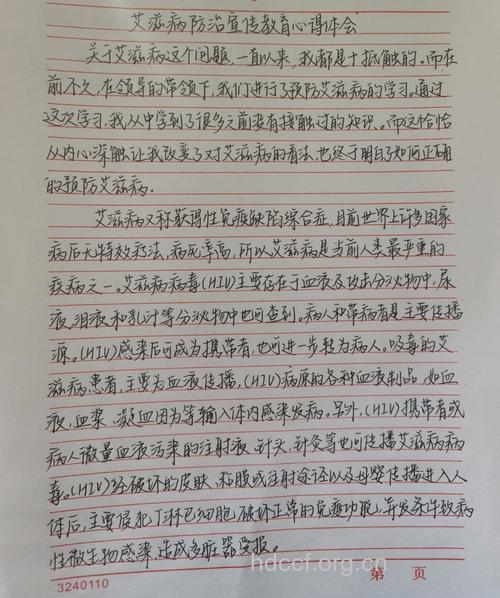 艾滋病防治宣传教育心得体会
关于艾滋病这个问题,一直以来,我都是十抵触的。而在
前不久,在领导的带领下,我们进行了预防艾滋病的学习。通过
这次学习,我从中学到了很多之前没有接触过的知识。而这个恰恰
从内心深触让我改变了对艾滋病的看法,也终于明白了如何正确
的预防艾滋病.
艾滋病又称获得性免疫缺陷综合症,目前世界上许多国家
病后无特效疗法,病死率高,所以艾滋病是当前人类最严重的
疾病之一。艾滋病病毒(HIV)主要存在于血液及攻击分泌物中,尿
液,泪液和乳汁等分泌物中也可查到。病人和带病者是主要传播
源。(HIV)感染后可成为携带者,也可进一步转为病人。吸毒的艾
滋病患者,主要为血液传播,(HIV)病原的各种血液制品,如血
液,血浆、凝血因为等输入体内感染发病。另外,(HIV)携带者或
病人微量血液污染的注射液、针头,针灸等也可传播艾滋病病
毒。(HIV)经破坏的皮肤、粘膜或注射途径以及母婴传播进入人
体后,主要侵犯T淋巴细胞,破坏正常的免疫功能,并发条件致病
性微生物感染,造成多脏器受损。
3240110
第 页
hdccf.org.cn